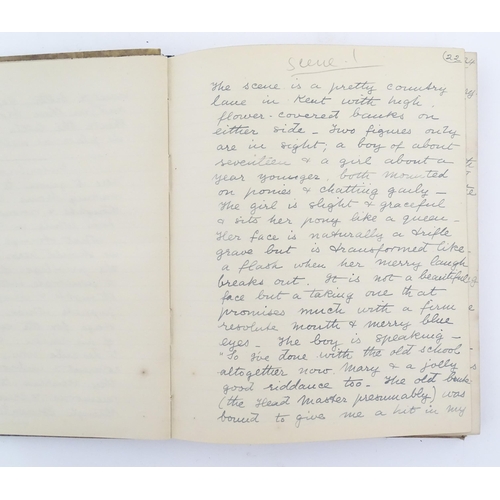 Scene 1
(22
The scene is a pretty country
lane in Kent with high,
flower-covered banks on
either side - Two figures only
are in sight; a boy of about
seventeen & a girl about a
year younger, both mounted
on ponies & chatting gaily -
The girl is slight & graceful
& sits her pony like a queen -
Her face is naturally a trifle
grave but is transformed like
a flash when her merry laugh
breaks out. It is not a beautiful
face but a taking one that
promises much with a firm
resolute mouth & merry blue
eyes - The boy is speaking -
"So I've done with the old school
altogether now Mary & a jolly
good riddance too - The old
(the Head Master presumably) was
bound to give me a hit in my